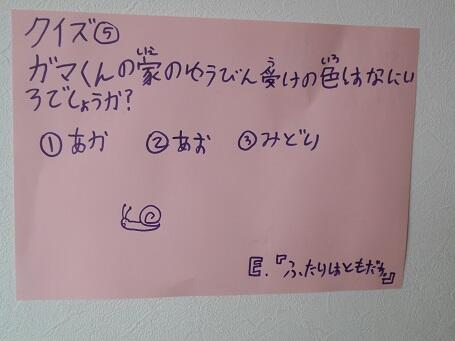 クイズ⑤
ガマくんの家のゆうびん受けの色はなにい
ろでしょうか?
①あか ②あお ③みどり
E.『ふたりはともだち』